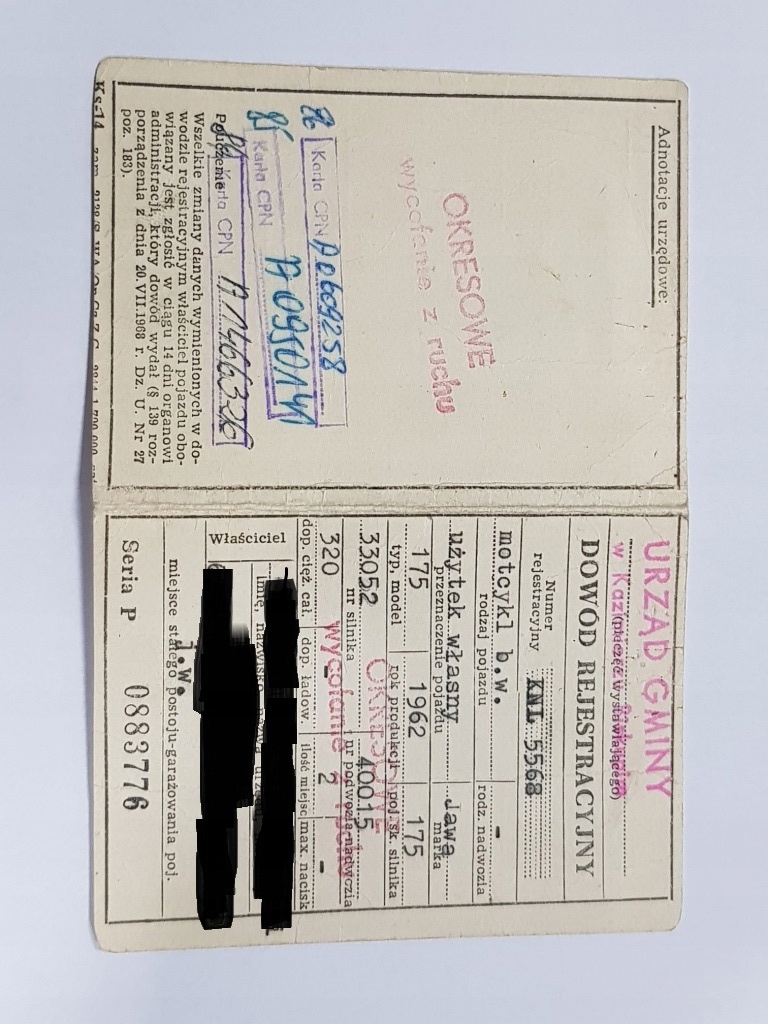 Adnotacje urzędowe:
OKRESOWE
wycofanie z ruchu
86 Karta CPN A0609258
85 Karta CPN A0950141
84 Karta CPN A1466326
Pouczenie
Wszelkie zmiany danych wymienionych w do-
wodzie rejestracyjnym właściciel pojazdu obo-
wiązany jest zgłosić w ciągu 14 dni organowi
administracji, który dowód wydał (§ 139 roz-
porządzenia z dnia 20.VII.1968 r. Dz. U. Nr 27
poz. 183).
Ks-14
URZĄD GMINY
w
(pieczęć wystawiającego)
DOWÓD REJESTRACYJNY
Numer
rejestracyjny KNL 5568
motcykl b.w. -
rodzaj pojazdu rodz. nadwozia
użytek własny Jawa
przeznaczenie pojazdu marka
175 1962 175
typ, model rok produkcji poj. sk. silnika
33052 40015
nr silnika nr podwozia-nadwozia
OKRESOWE
wycofanie z ruchu
320 - 2 -
dop. cięż. cał. dop. ładow. ilość miejsc max. nacisk
Właściciel
imię, nazwisko
j.w.
miejsce stałego postoju-garażowania poj.
Seria P 0883776